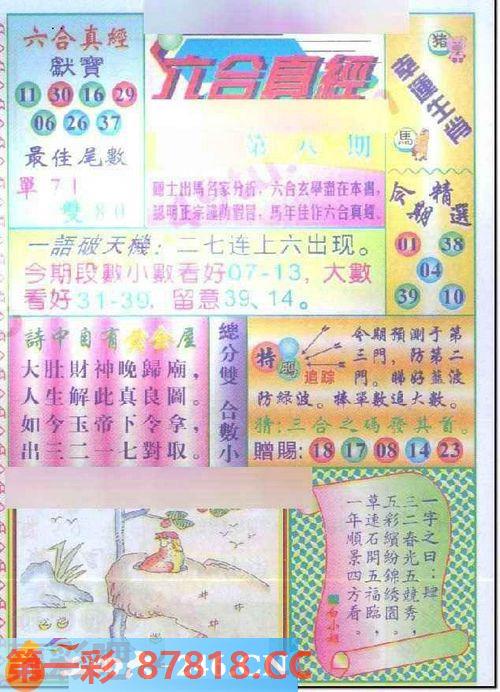 六合真經
獻寶
11 30 16 29
06 26 37
最佳尾數
單 71
雙 80
六合真經
第八期
猪
幸運生肖
馬
今期精選
01 38
04
39 10
認明正宗謹防假冒，馬年佳作六合真經。
一語破天機：二七连上六出现。
今期段數小數看好07-13，大數
看好31-39，留意39、14。
詩中自有黄金屋
大肚財神晚歸廟，
人生解此真良圖。
如今玉帝下令拿，
出三二一七對取。
總分雙 合數小
特碼追踪
今期預測于第
三門，防第二
門。睇好藍波
防綠波。棒單數追大數。
猜：三合之碼發其首。
贈賜：18 17 08 14 23
一字之曰：肆
三二春光五競秀，
五彩繽紛錦綉園，
草速石開五福臨，
一年順景四方看。
白小姐
第一彩 87818.CC
246.CN